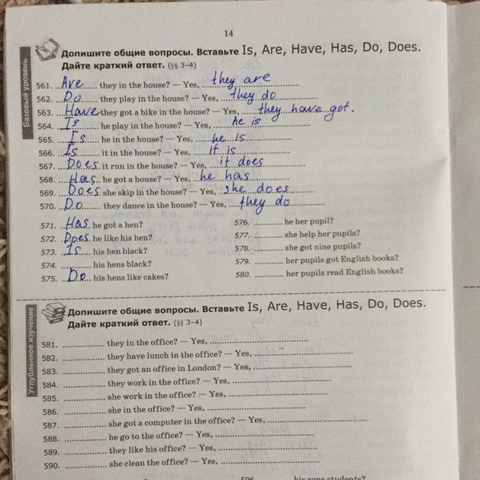 14
Базовый уровень
Допишите общие вопросы. Вставьте Is, Are, Have, Has, Do, Does.
Дайте краткий ответ. (§§ 3-4)
561. Are they in the house? — Yes, they are
562. Do they play in the house? — Yes, they do
563. Have they got a bike in the house? — Yes, they have got.
564. Is he play in the house? — Yes, he is
565. Is he in the house? — Yes, he is
566. Is it in the house? — Yes, it is
567. Does it run in the house? — Yes, it does
568. Has he got a house? — Yes, he has
569. Does she skip in the house? — Yes, she does
570. Do they dance in the house? — Yes, they do
571. Has he got a hen?
572. Does he like his hen?
573. Is his hen black?
574. his hens black?
575. Do his hens like cakes?
576. he her pupil?
577. she help her pupils?
578. she got nine pupils?
579. her pupils got English books?
580. her pupils read English books?
Углубленное изучение
Допишите общие вопросы. Вставьте Is, Are, Have, Has, Do, Does.
Дайте краткий ответ. (§§ 3-4)
581. they in the office? — Yes,
582. they have lunch in the office? — Yes,
583. they got an office in London? — Yes,
584. they work in the office? — Yes,
585. she work in the office? — Yes,
586. she in the office? — Yes,
587. she got a computer in the office? — Yes,
588. he go to the office? — Yes,
589. they like his office? — Yes,
590. she clean the office? — Yes,
596. his sons students?